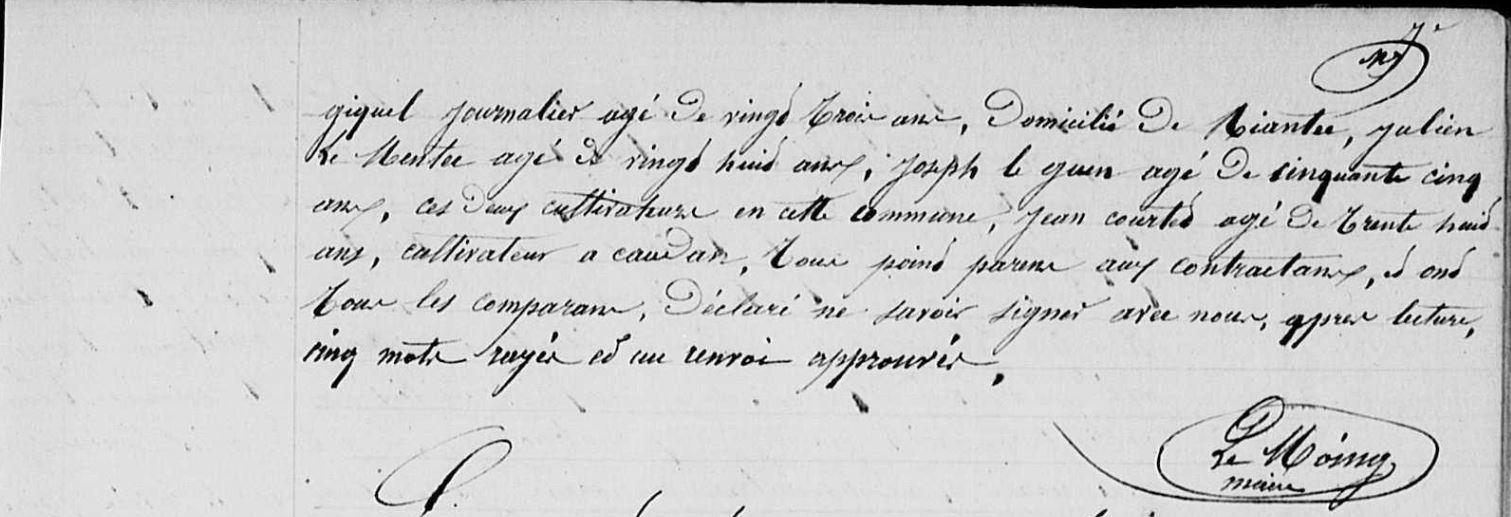 7e
giquel journalier agé de vingt trois ans, Domicilié De Riantec, julien
Le Mentec agé de vingt huit ans, joseph le guen agé De cinquante cinq
ans, ces deux cultivateurs en cette commune, jean courtet agé De trente huit
ans, cultivateur a caudan, tous point parens aux contractans, et ont
tous les comparans, Déclaré ne savoir signer avec nous, apres lecture,
cinq mots rayés et un renvoi approuvés,
Le Moing
maire